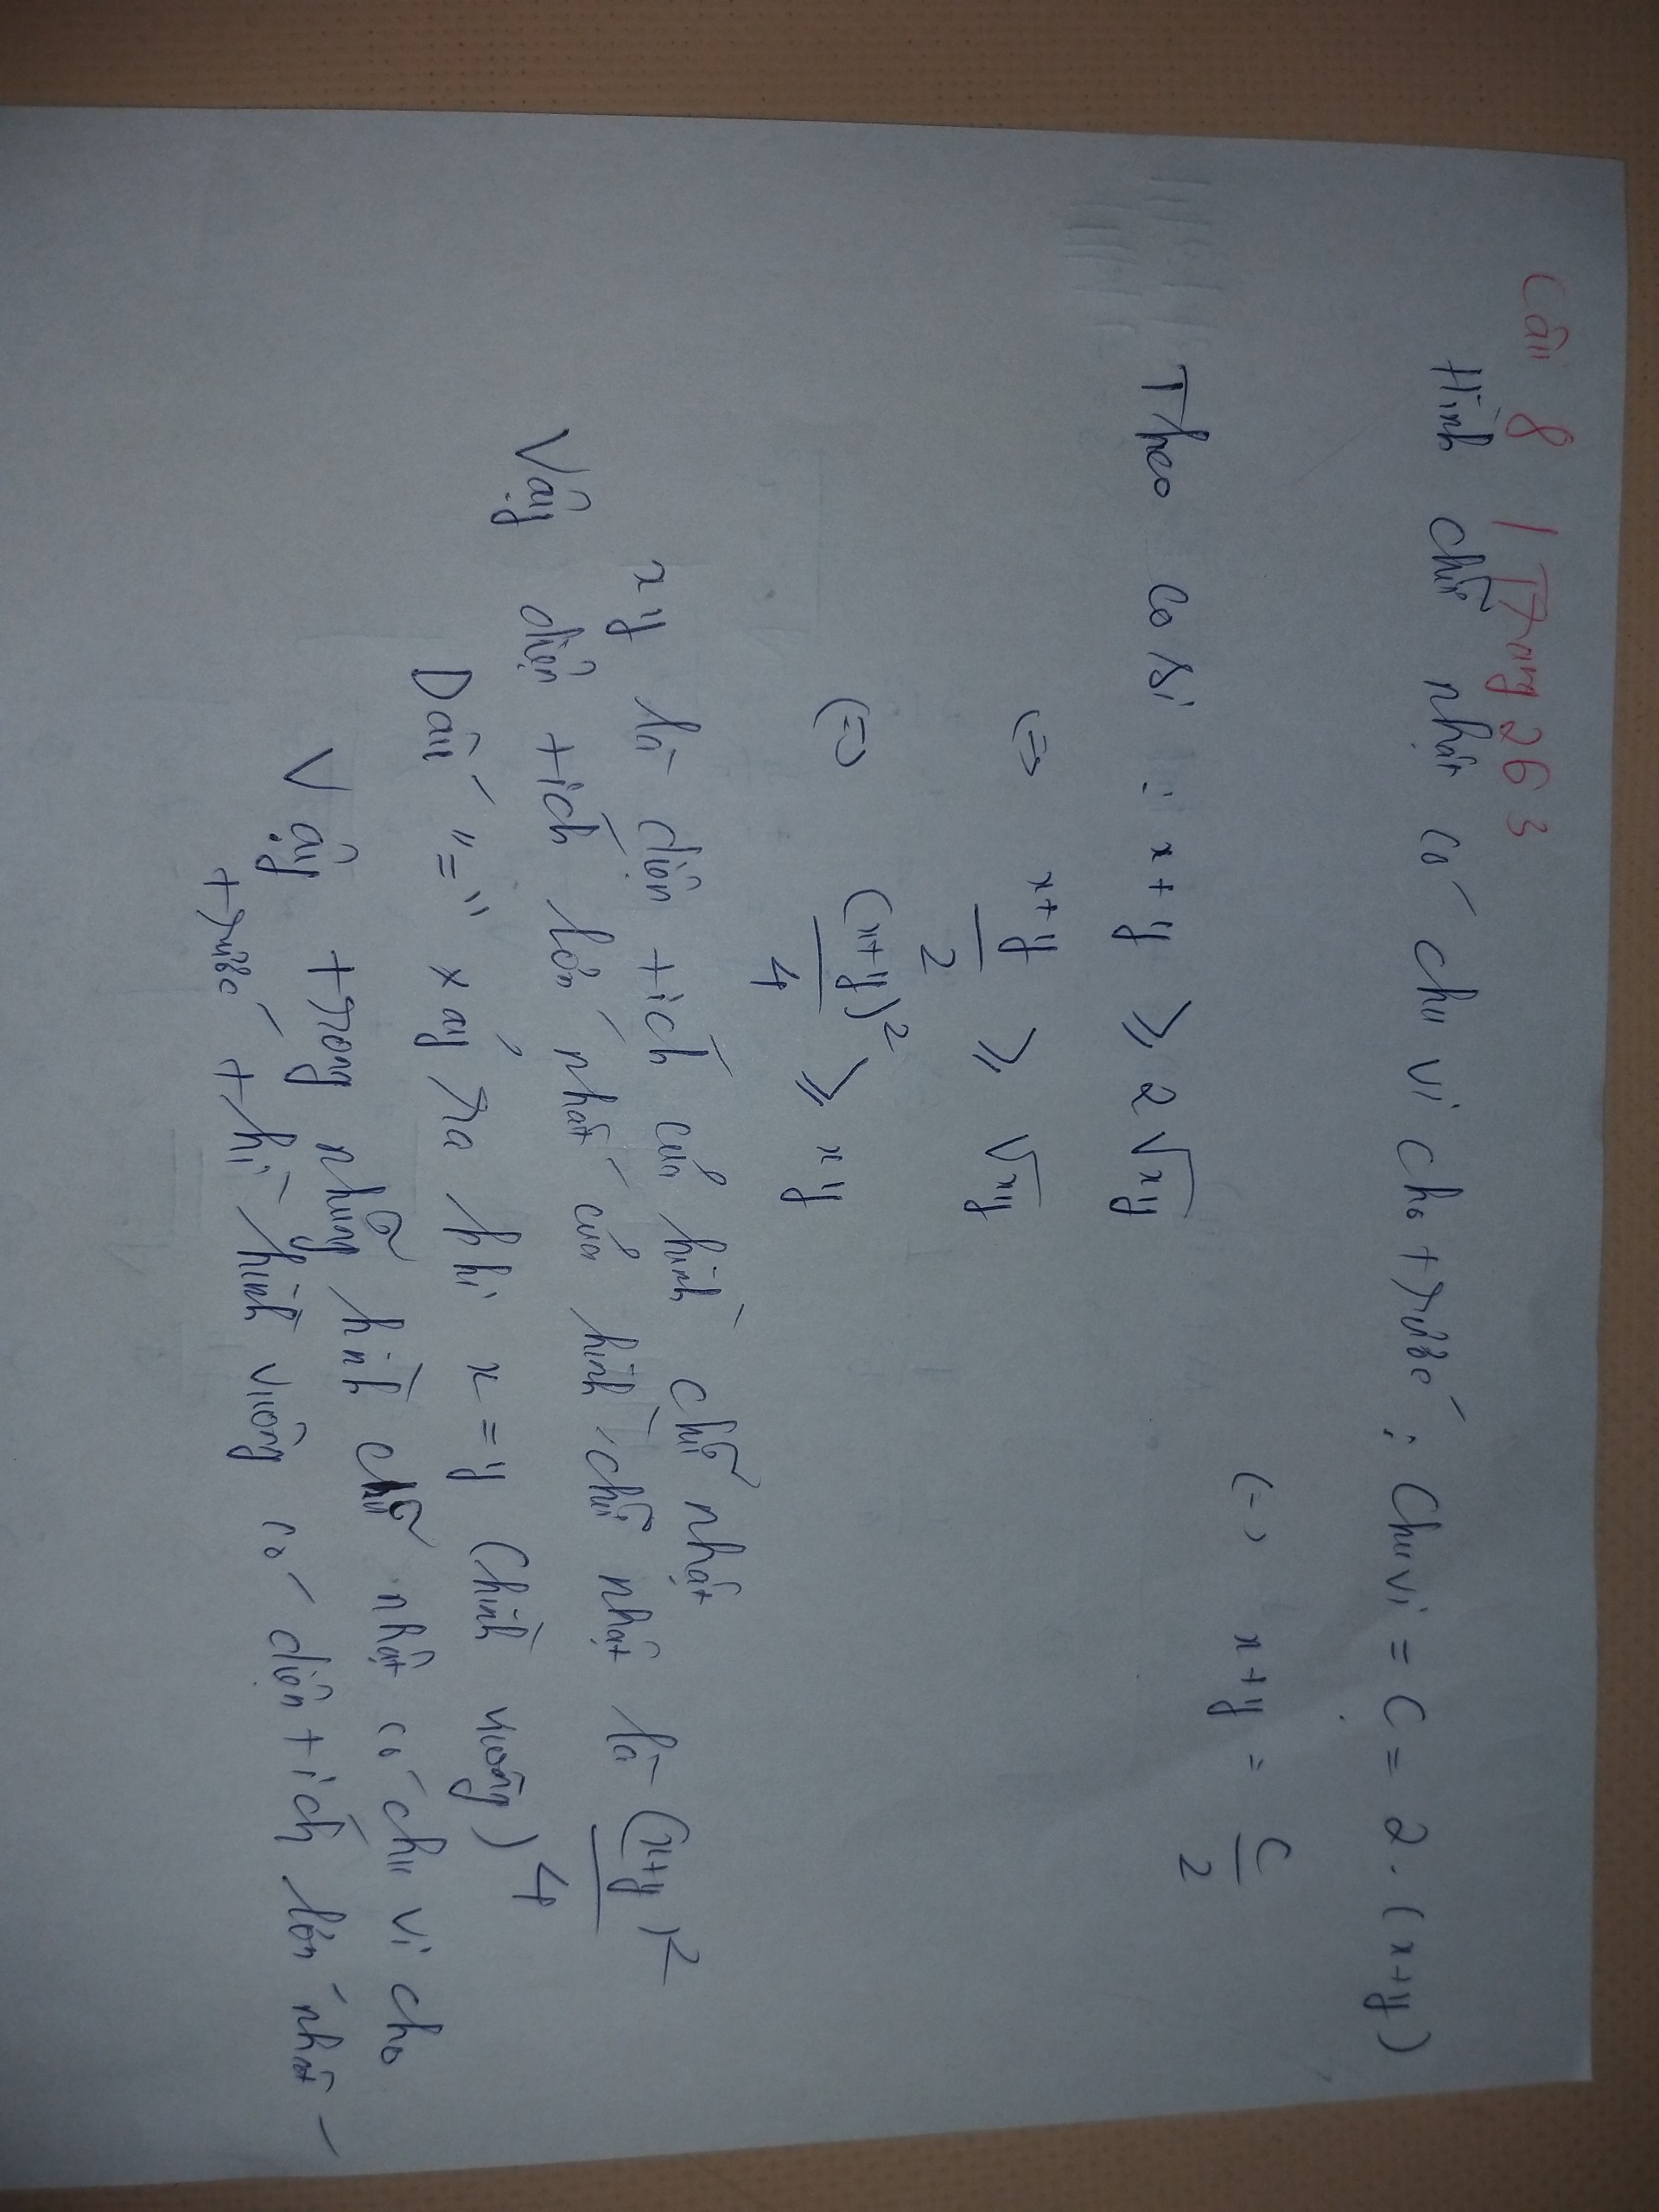 Câu 8 / Trang 263
Hình chữ nhật có chu vi cho trước : Chu vi = C = 2 . (x+y)
(=) x+y = C/2
Theo cosi : x+y ⩾ 2√xy
(=) x+y/2 ⩾ √xy
(=) (x+y)²/4 ⩾ xy
xy là diện tích của hình chữ nhật
Vậy diện tích lớn nhất của hình chữ nhật là (x+y)²/4
Dấu "=" xảy ra khi x = y (hình vuông)
Vậy trong những hình chữ nhật có chu vi cho
trước thì hình vuông có diện tích lớn nhất